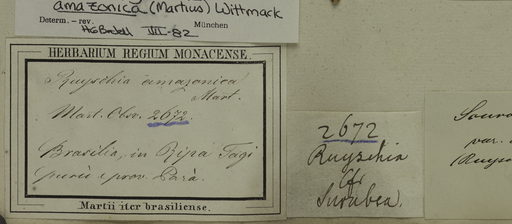 amazonica (Martius) Wittmack
Determ. – rev. München
HGBedell VII-82
HERBARIUM REGIUM MONACENSE.
Ruyschia amazonica
Mart.
Mart. Obs. 2672.
Brasilia, in Ripa Tagi
puru, prov. Pará.
Martii iter brasiliense.
2672
Ruyschia
Cf.
Surubea.
Souro
var.
(Ruysc